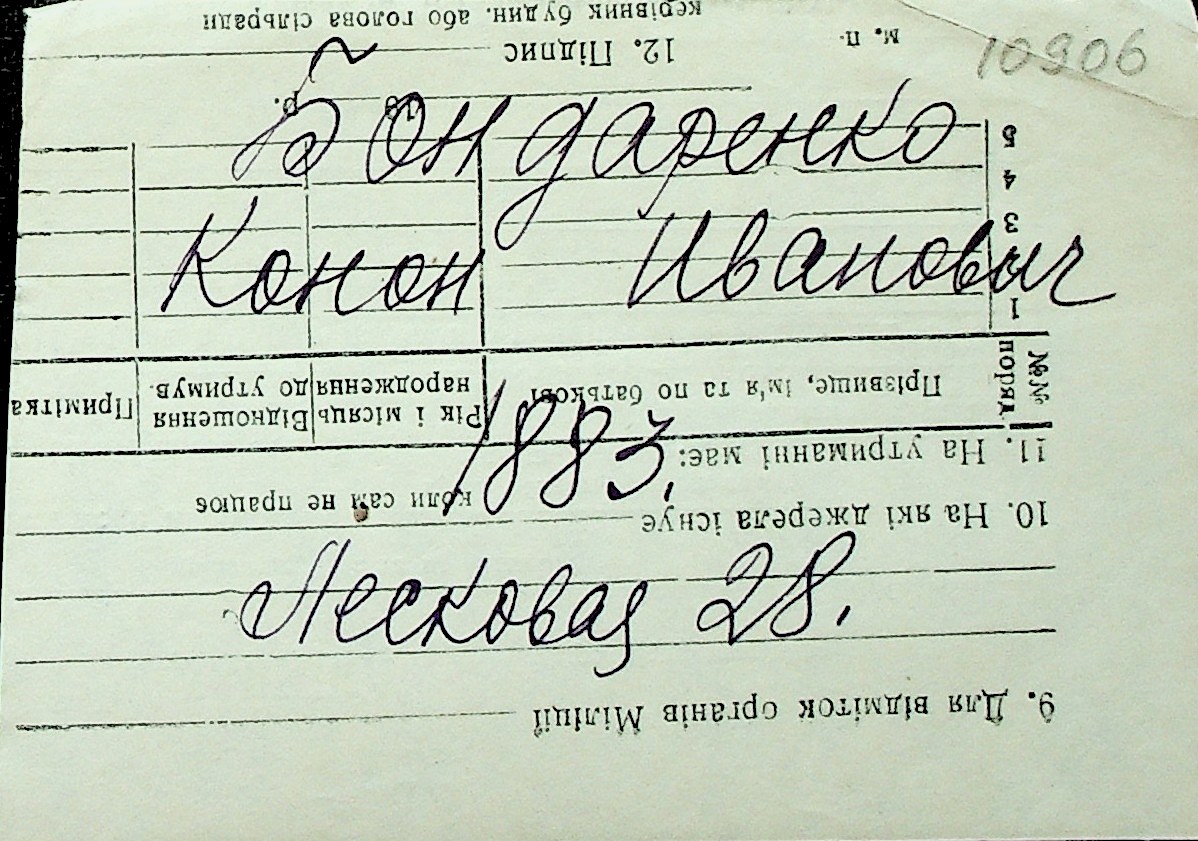 10906
Бондаренко
Конон Иванович
1883.
Лесковая 28.
9. Для відміток органів Міліції
10. На які джерела існує
коли сам не працює
11. На утриманні має:
№№ поряд.
Прізвище, ім'я та по батькові
Рік і місяць народження
Відношення до утримув.
Примітка
1
2
3
4
5
19 р.
м. п. 12. Підпис
керівник будин. або голова сільради